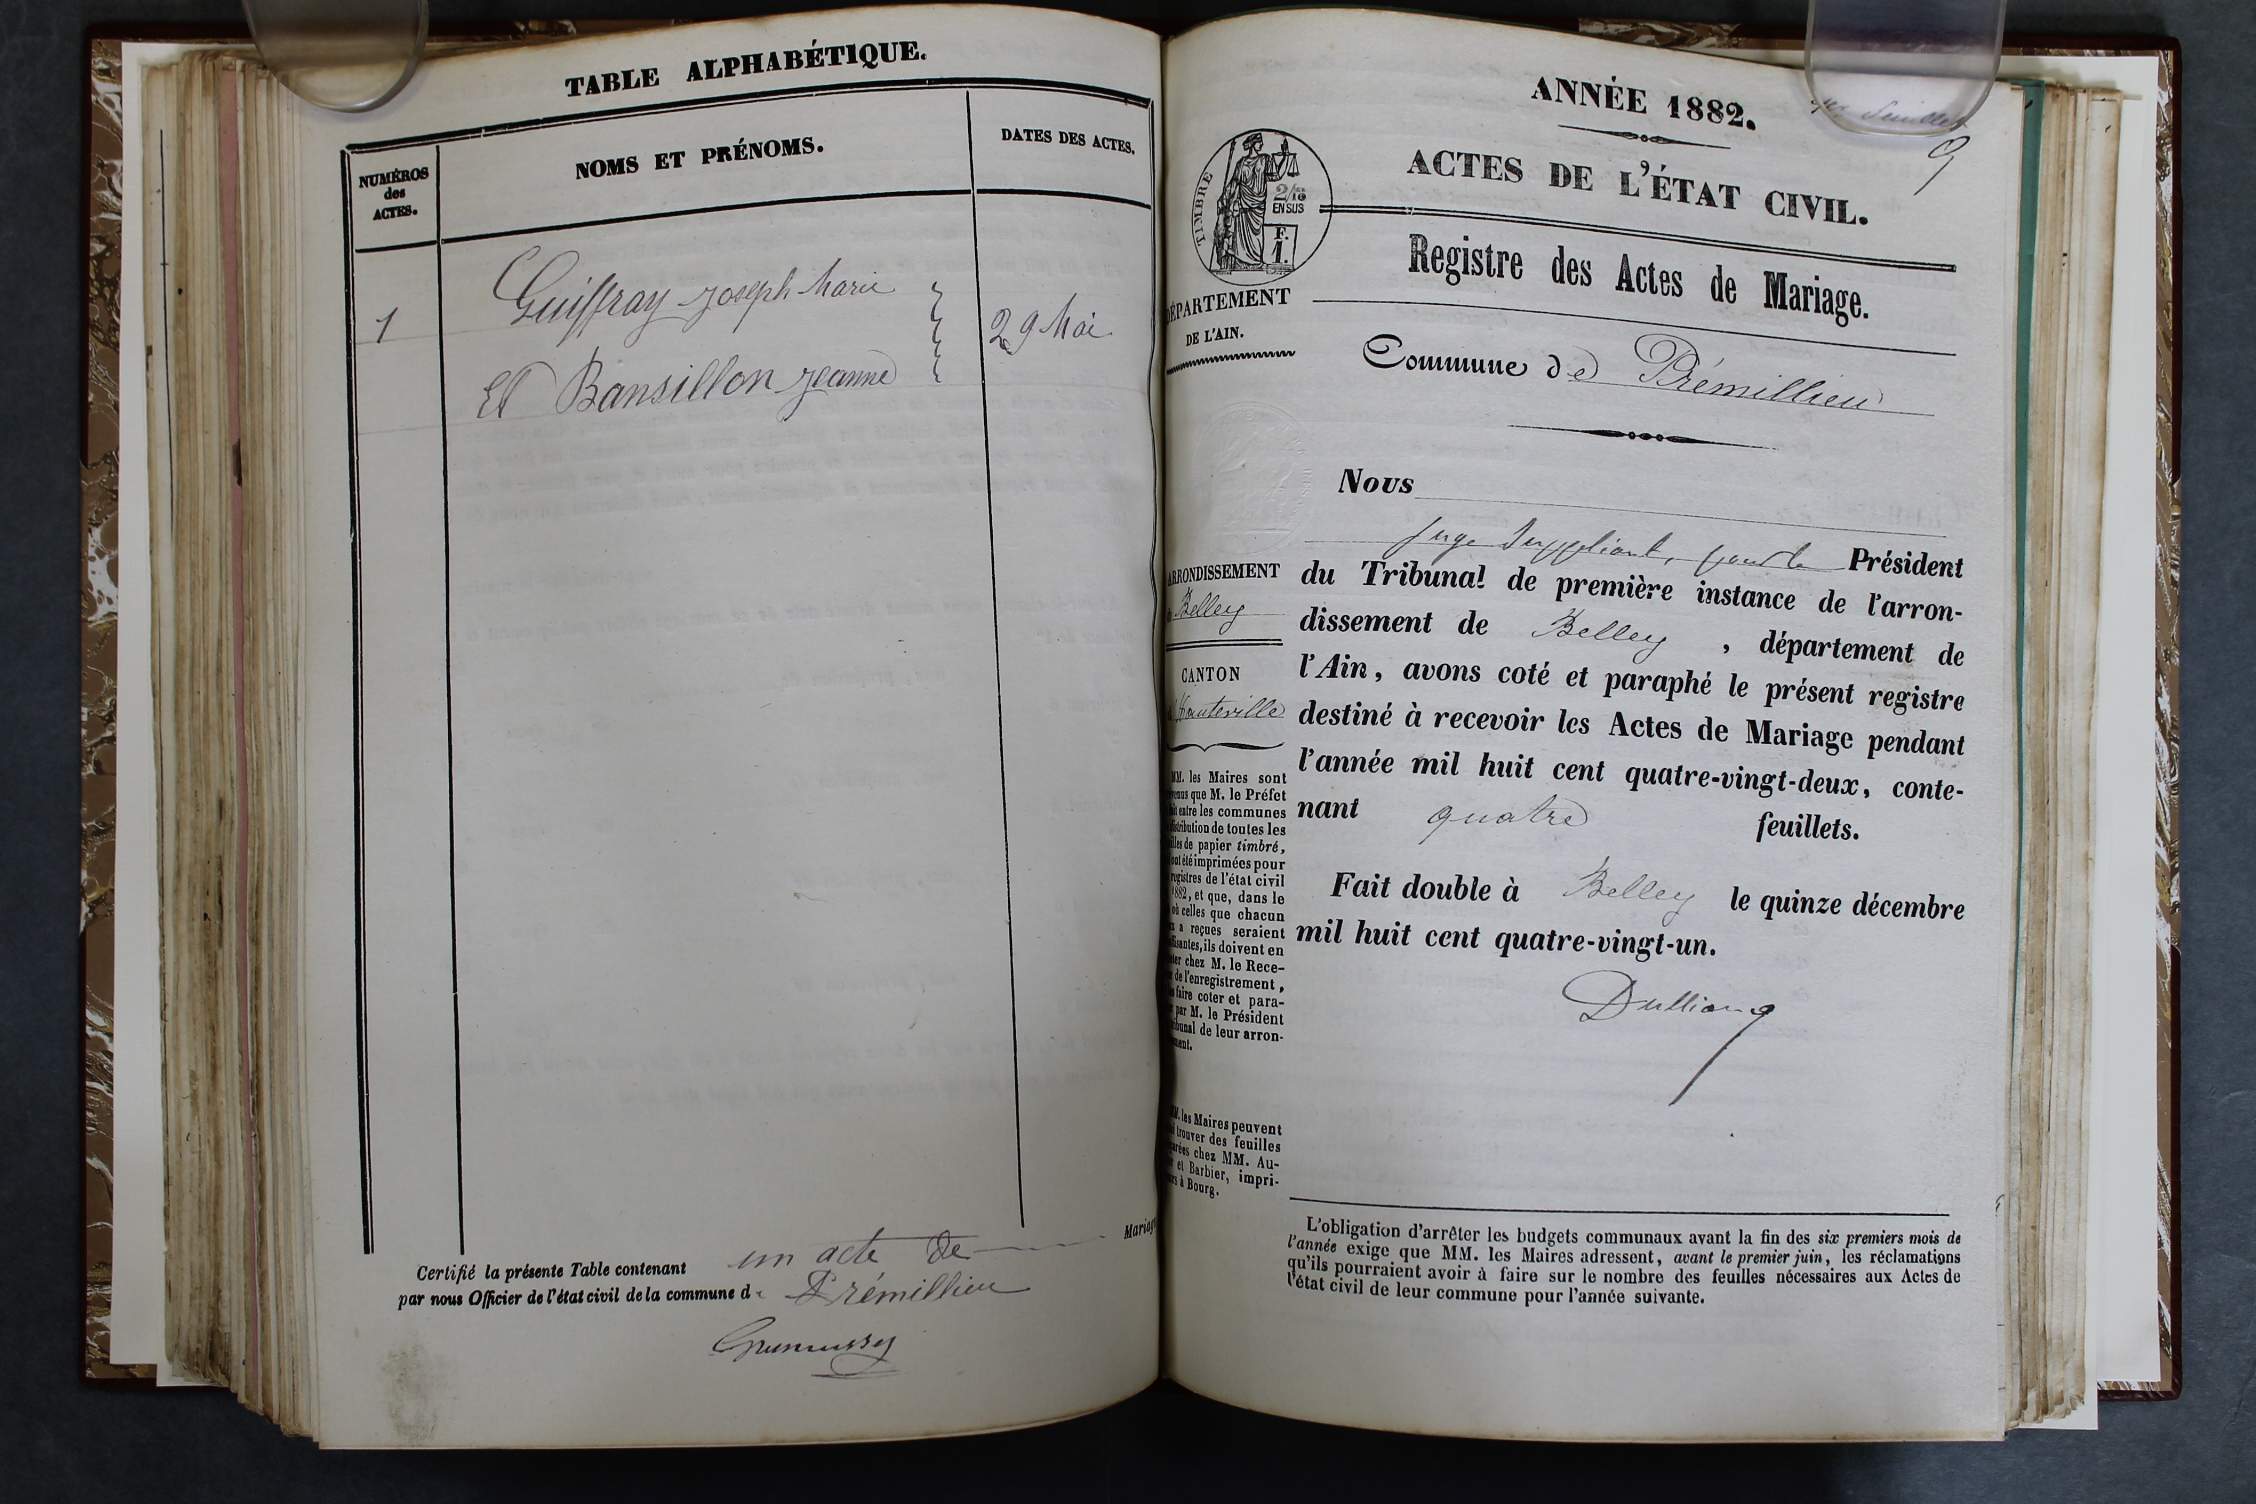 TABLE ALPHABÉTIQUE.
NUMÉROS
des
ACTES.
NOMS ET PRÉNOMS.
DATES DES ACTES.
1
Guiffray Joseph Marie
29 Mai
Et Bansillon Jeanne
Certifié la présente Table contenant un acte de Mariage
par nous Officier de l'état civil de la commune d Prémillieu
ANNÉE 1882.
ACTES DE L'ÉTAT CIVIL.
TIMBRE
2/10
EN SUS
F.
1.
Registre des Actes de Mariage.
DÉPARTEMENT
DE L'AIN.
Commune de Prémillieu
Nous
Juge Suppléant, pour le Président
du Tribunal de première instance de l'arron-
dissement de Belley, département de
l'Ain, avons coté et paraphé le présent registre
destiné à recevoir les Actes de Mariage pendant
l'année mil huit cent quatre-vingt-deux, conte-
nant quatre feuillets.
Fait double à Belley le quinze décembre
mil huit cent quatre-vingt-un.
ARRONDISSEMENT
Belley
CANTON
Hauteville
MM. les Maires sont
que M. le Préfet
entre les communes
distribution de toutes les
de papier timbré,
ont été imprimées pour
registres de l'état civil
1882, et que, dans le
où celles que chacun
a reçues seraient
ils doivent en
chez M. le Rece-
de l'enregistrement,
faire coter et para-
par M. le Président
de leur arron-
MM. les Maires peuvent
trouver des feuilles
chez MM. Au-
et Barbier, impri-
à Bourg.
L'obligation d'arrêter les budgets communaux avant la fin des six premiers mois de
l'année exige que MM. les Maires adressent, avant le premier juin, les réclamations
qu'ils pourraient avoir à faire sur le nombre des feuilles nécessaires aux Actes de
l'état civil de leur commune pour l'année suivante.